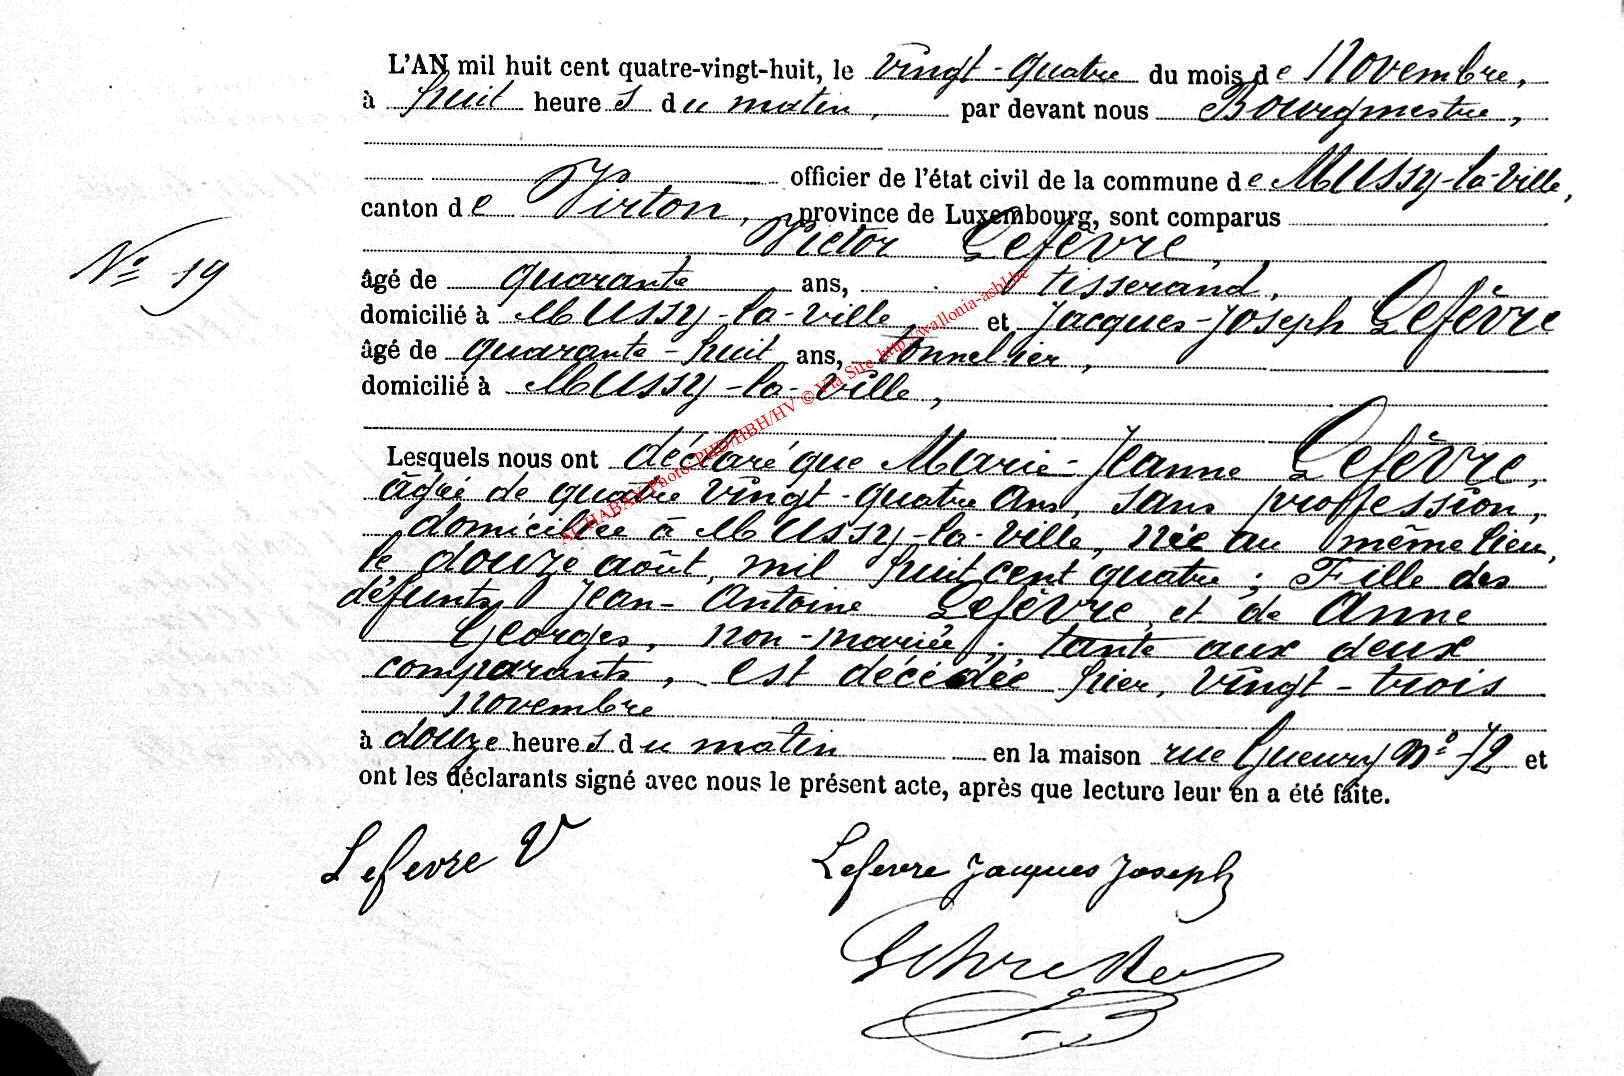 L'AN mil huit cent quatre-vingt-huit, le vingt-quatre du mois de Novembre,
à huit heures du matin, par devant nous Bourgmestre,
officier de l'état civil de la commune de Mussy-la-Ville,
canton de Virton, province de Luxembourg, sont comparus
Victor Lefèvre,
N° 19
âgé de quarante ans, tisserand,
domicilié à Mussy-la-Ville, et Jacques-Joseph Lefèvre
âgé de quarante-huit ans, tonnelier,
domicilié à Mussy-la-Ville,
Lesquels nous ont déclaré que Marie-Jeanne Lefèvre,
âgée de quatre vingt-quatre ans, sans proffession,
domiciliée à Mussy-la-Ville, née au même lieu,
le douze août, mil huit cent quatre ; Fille des
défunts Jean-Antoine Lefèvre, et de Anne
Georges, non-mariée ; tante aux deux
comparants, est décédée hier, vingt-trois
novembre
à douze heures du matin en la maison rue Gueury N° 72 et
ont les déclarants signé avec nous le présent acte, après que lecture leur en a été faite.
Lefevre V
Lefevre Jacques Joseph
AC HABAY Photo-PHD/HBH/HV © Via Site http://wallonia-asbl.be